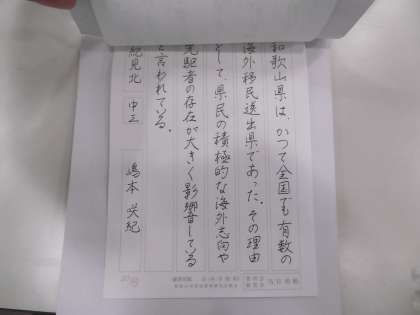 和歌山県は、かつて全国でも有数の
海外移民送出県であった。その理由
として、県民の積極的な海外志向や
先駆者の存在が大きく影響している
と言われている。
紀見北 中三 嶋本 咲紀